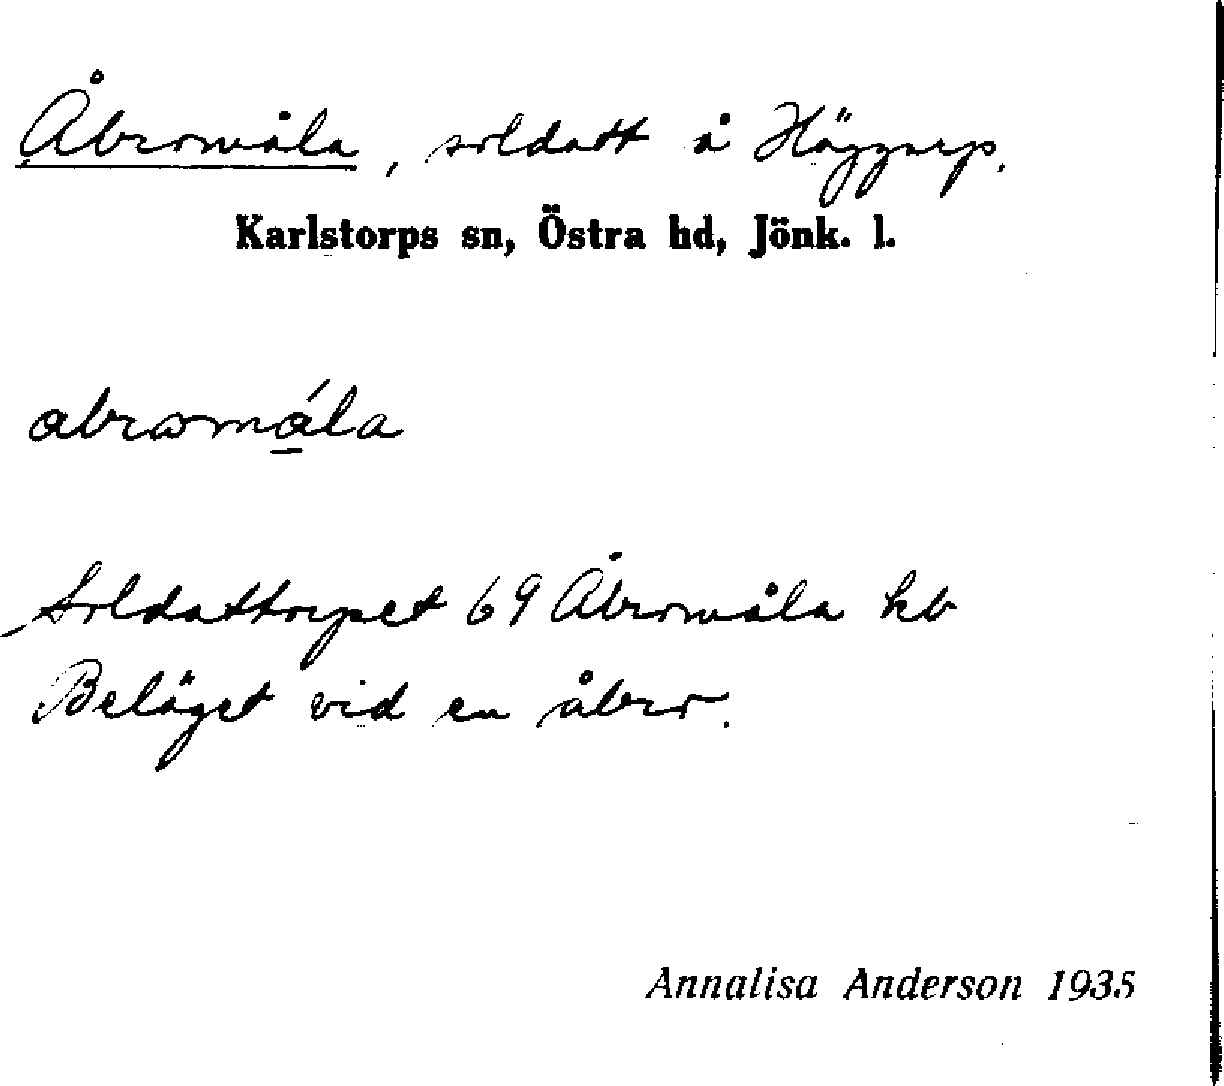 Åbromåla, soldatt å Häggarp.
Karlstorps sn, Östra hd, Jönk. l.
abromǻla
Soldattorpet 69 Åbromåla kb
Beläget vid en åbro.
Annalisa Anderson 1935